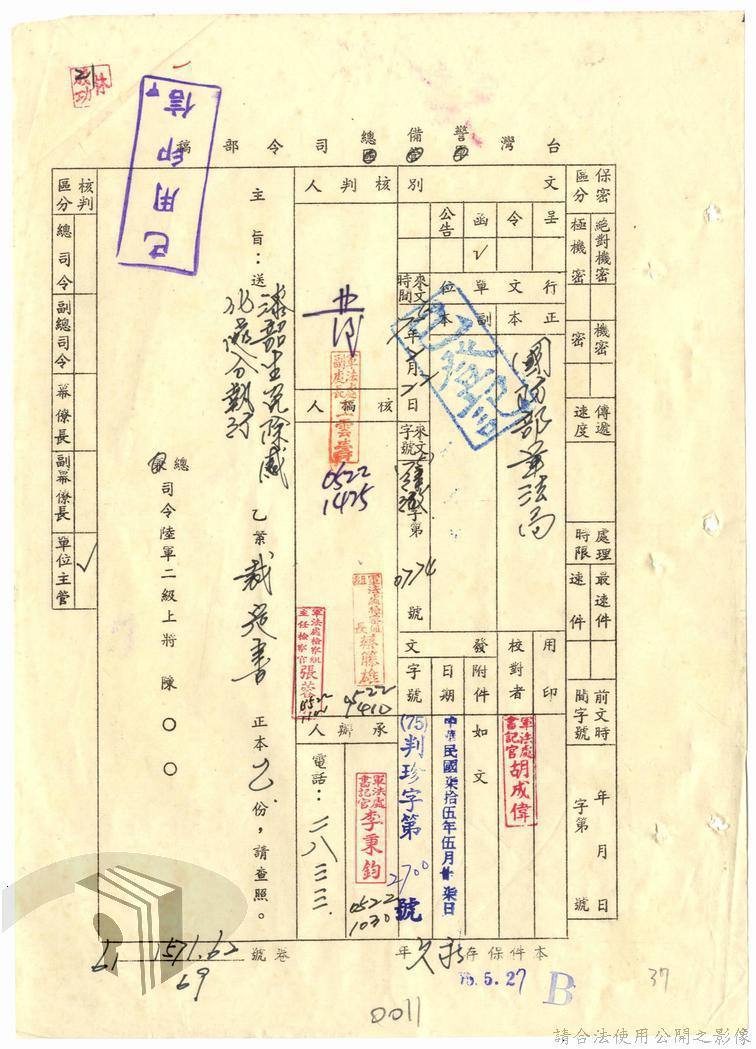 台灣警備總司令部稿
保密區分
絕對機密
極機密
機密
密
傳遞速度
處理時限
最速件
速件
前文時間字號
年 月 日
字第 號
文別
呈
令
函 ✓
公告
行文單位
正本
國防部軍法局
副本
用印
校對者
軍法處書記官胡成偉
發文
附件
如文
日期
中華民國柒拾伍年伍月廿柒日
字號
(75)判珍字第2700號
來文時間
年 月 日
來文字號
字第0774號
核判人
軍法處副處長
核稿人
0522
1425
組長
蔡籐雄
0522
軍法處檢察組
主任檢察官
承辦人
軍法處書記官李秉鈞
0522
1030
電話：二八三三
主旨：送
乙案裁定書正本乙份，請查照。
總司令陸軍二級上將陳○○
核判區分
總司令
副總司令
幕僚長
副幕僚長
單位主管 ✓
已用印信
成功
本件保存永久年
75.5.27
B
卷號
1571.62
69
0011
37
請合法使用公開之影像